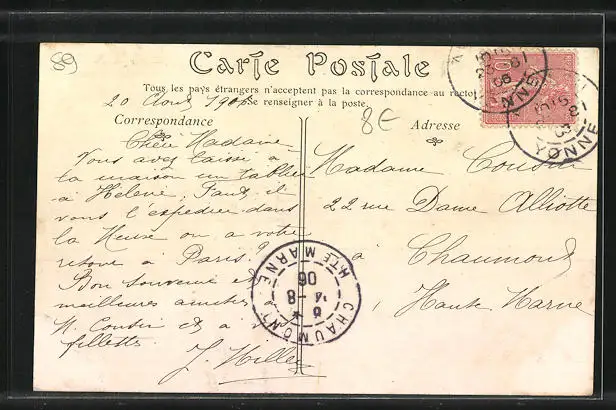 89
Carte Postale
Tous les pays étrangers n'acceptent pas la correspondance au recto
se renseigner à la poste.
20 Août 1906
8E
Correspondance
Adresse
Chère Madame
Vous avez laissé à
la maison un tablier
à Hélène, Faut-il
vous l'expédier dans
la Meuse ou a votre
retour à Paris?
Bon souvenir et
meilleures amitiés à
M. Cousin et a
fillette
J. Miller
Madame Cousin
22 rue Dame Alliotte
à Chaumont
Haute Marne
YONNE
YONNE
10
CHAUMONT
HTE MARNE
8
06